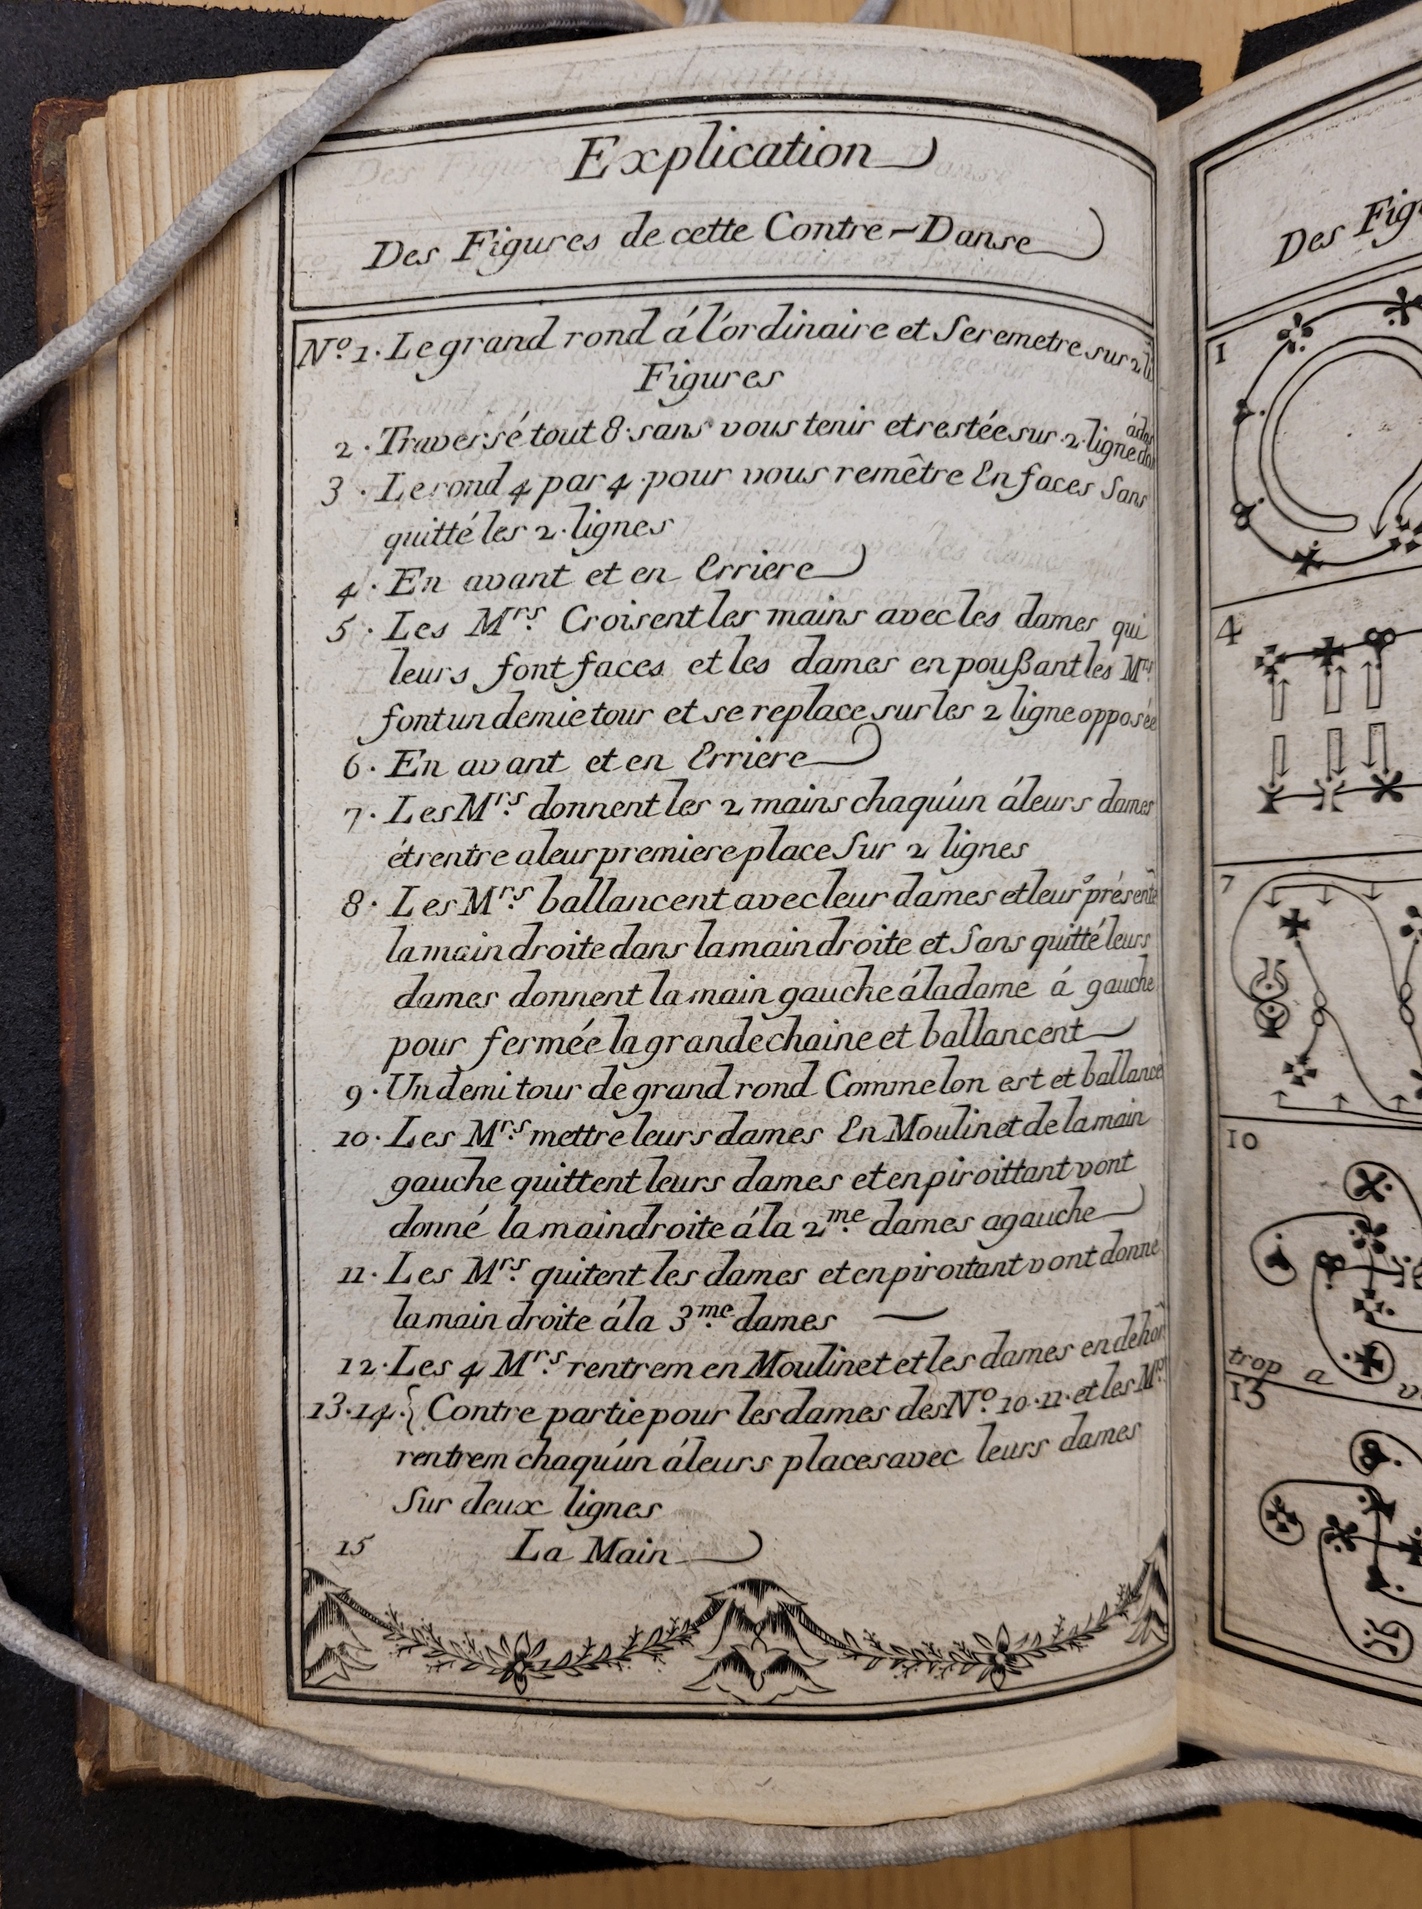 Explication
Des Figures de cette Contre-Danse
Nº 1. Le grand rond á l'ordinaire et Se remetre sur 2 li
Figures
2. Traversé tout 8 sans vous tenir et restée sur 2 ligne
3. Le rond 4 par 4 pour vous remêtre En faces Sans
quitté les 2 lignes
4. En avant et en Erriere
5. Les Mrs. Croisent les mains avec les dames qui
leurs font faces et les dames en poußant les Mrs
font un demie tour et se replace sur les 2 ligne opposée
6. En avant et en Erriere
7. Les Mrs. donnent les 2 mains chaqu'ún á leurs dames
ét rentre a leur premiere place Sur 2 lignes
8. Les Mrs. ballancent avec leur dames et leurs présente
la main droite dans la main droite et Sans quitté leurs
dames donnent la main gauche á la dame á gauche
pour fermée la grande chaine et ballancent
9. Un demi tour de grand rond Comme lon est et ballancé
10. Les Mrs. mettre leurs dames En Moulinet de la main
gauche quittent leurs dames et en piroittant vont
donné la main droite á la 2me. dames a gauche
11. Les Mrs. quitent les dames et en piroitant vont donné
la main droite á la 3me. dames
12. Les 4 Mrs rentrem en Moulinet et les dames en dehor
13.14.{ Contre partie pour les dames des Nº. 10.11. et les Mrs
rentrem chaqu'ún á leurs places avec leurs dames
Sur deux lignes
15 La Main
Des Fig
1
4
7
10
trop a
13